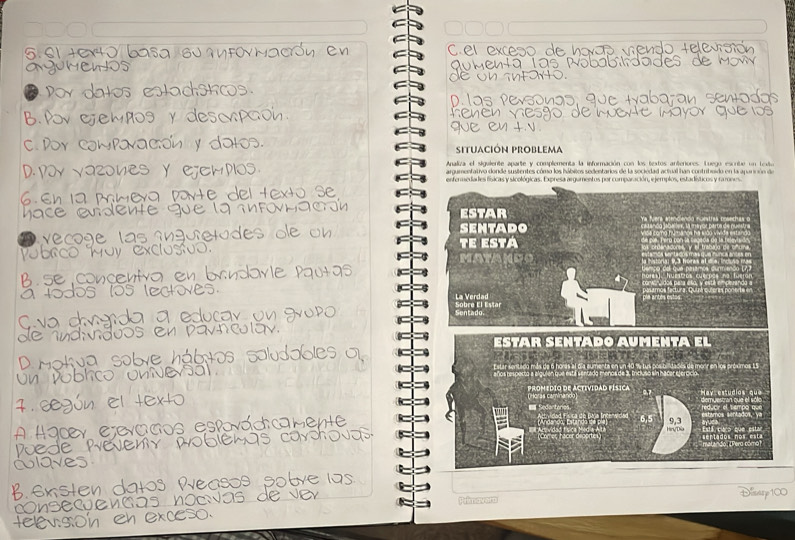 5. El texto basa su información en
argumentos
Por datos estadísticos.
B. Por ejemplos y descripción.
C. Por comparación y datos.
D. Por razones y ejemplos.
6. En la primera parte del texto se
hace evidente que la información
recoge las inquietudes de un
público muy exclusivo.
B. se concentra en brindarle pautas
a todos los lectores.
C. va dirigida a educar un grupo
de individuos en particular.
D. Motiva sobre hábitos saludables a
un público universal.
7. según el texto
A. Hacer ejercicios esporádicamente
puede prevenir problemas cardiovas
culares.
B. Existen datos precisos sobre las
consecuencias nocivas de ver
televisión en exceso.
C. el exceso de horas viendo televisión
aumenta las probabilidades de morir
de un infarto.
D. las personas que trabajan sentados
tienen riesgo de muerte mayor que los
que en t.v.
SITUACIÓN PROBLEMA
Analiza el siguiente aparte y complementa la información con los textos anteriores. Luego escribe un texto
argumentativo donde sustentes cómo los hábitos sedentarios de la sociedad actual han contribuido en la aparición de
enfermedades físicas y sicológicas. Expresa argumentos por comparación, ejemplos, estadísticos y razones.
ESTAR
SENTADO
TE ESTÁ
MATANDO
Ya fuera atendiendo nuestras cosechas o
cazando jabalíes, la mayor parte de nuestra
vida como humanos ha sido vivida estando
de pie. Pero con la llegada de la televisión,
las ordenadores, y el trabajo de oficina,
estamos sentados más que nunca antes en
la historia: 9,3 horas al día, incluso más
tiempo del que pasamos durmiendo (7,7
horas). Nuestros cuerpos no fueron
construidos para eso, y está empezando a
pasarnos factura. Quizá quieras ponerte en
pie antes estos.
La Verdad
Sobre El Estar
Sentado.
ESTAR SENTADO AUMENTA EL
Estar sentado más de 6 horas al día aumenta en un 40 % tus posibilidades de morir en los próximos 15
años respecto a alguien que está sentado menos de 3. Incluso sin hacer ejercicio.
PROMEDIO DE ACTIVIDAD FÍSICA
(Horas caminando)
Sedentarios
Actividad Física de Baja Intensidad
(Andando, Estando de pie)
Actividad física Media-Alta
(Correr, hacer deportes)
0.7
6,5
9,3
Hrs/Día
Hay estudios que
demuestran que el sólo
reducir el tiempo que
estamos sentados, ya
ayuda.
Está claro que estar
sentados nos está
matando. ¿Pero cómo?
Primavera
Disney 100